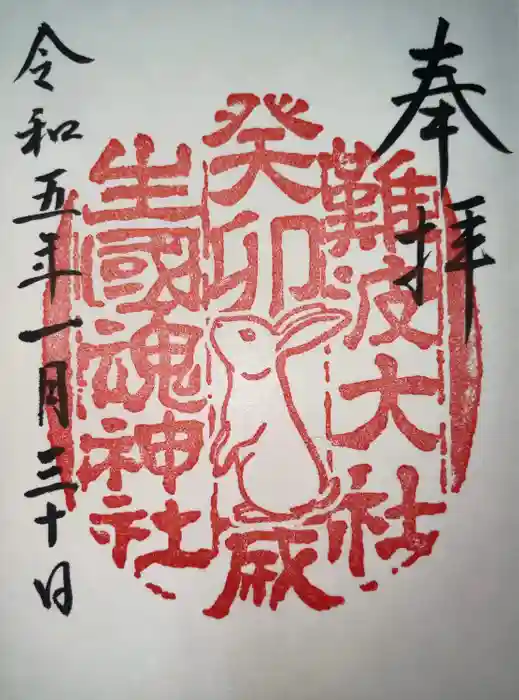 奉拝
難波大社
癸卯
歳
生國魂神社
令和五年一月三十日